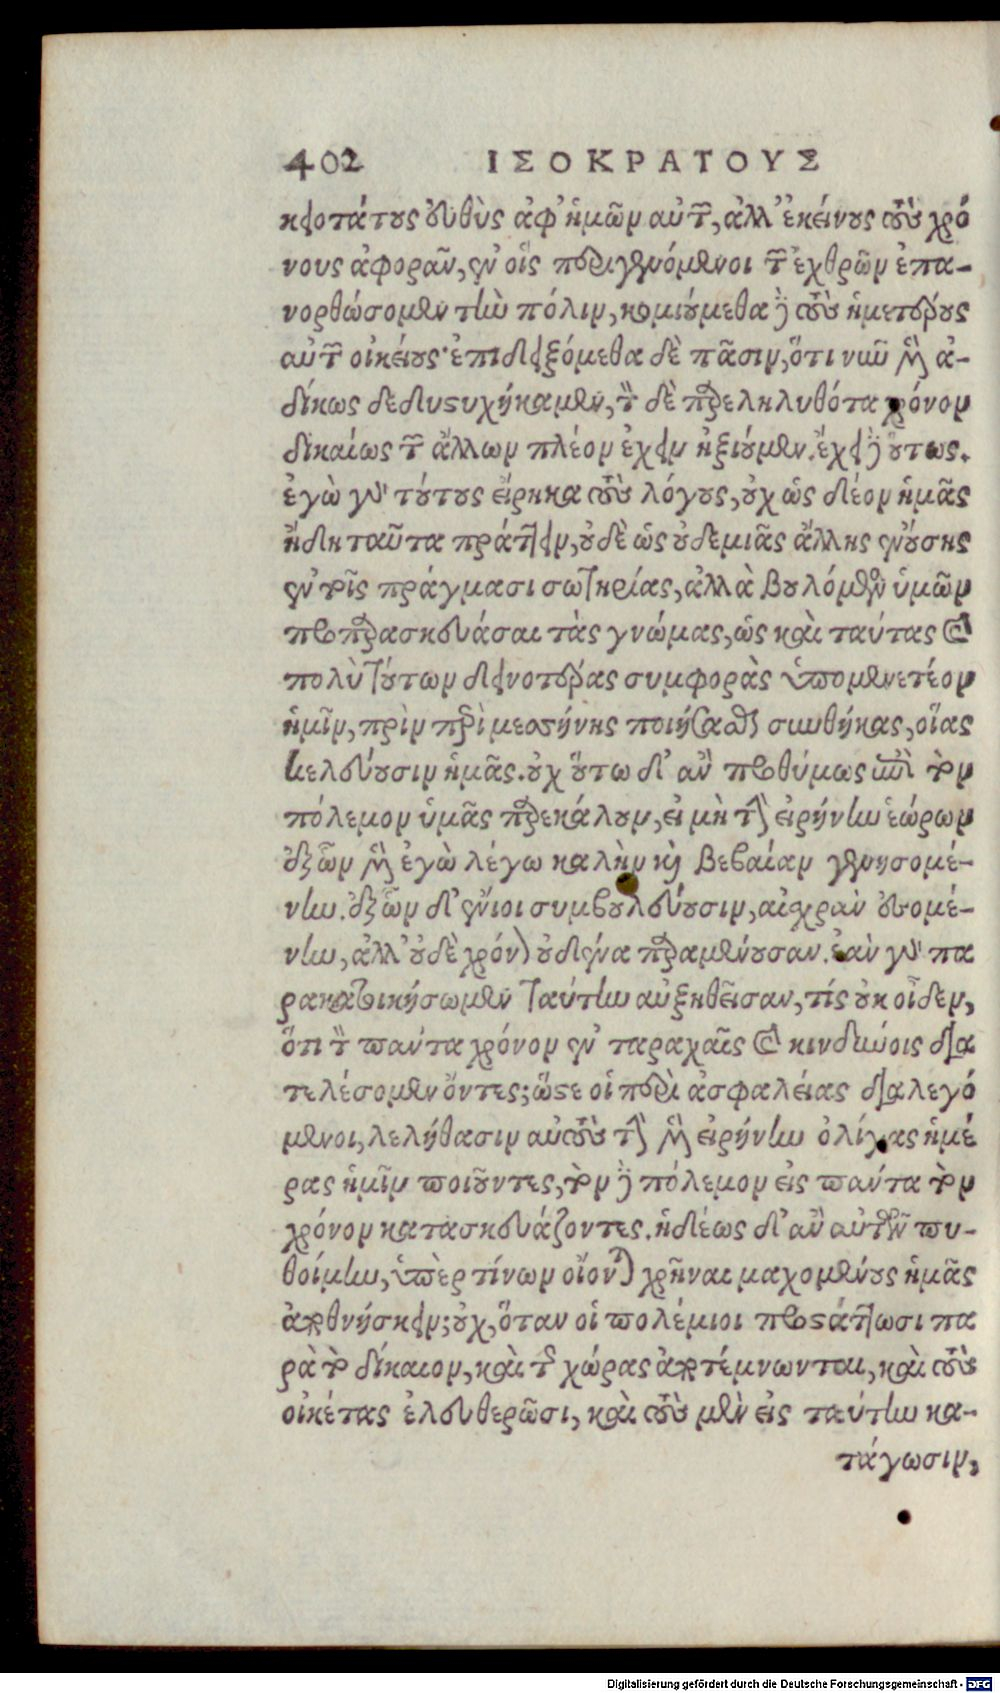 402 ΙΣΟΚΡΑΤΟΥΣ
κειοτάτους εὐθὺς ἀφ' ἡμῶν αὐτῶν, ἀλλ' ἐκείνους τοὺς χρό
νους ἀφορᾶν, ἐν οἷς περιγενόμενοι τῶν ἐχθρῶν ἐπα-
νορθώσομεν τὴν πόλιν, κομιούμεθα δὲ τοὺς ἡμετέρους
αὐτῶν οἰκείους· ἐπιδειξόμεθα δὲ πᾶσιν, ὅτι νῦν μὲν ἀ-
δίκως δεδυστυχήκαμεν, τὸν δὲ παρεληλυθότα χρόνον
δικαίως τῶν ἄλλων πλέον ἔχειν ἠξιοῦμεν. ἔχει δ' οὕτως.
ἐγὼ γὰρ τούτους εἴρηκα τοὺς λόγους, οὐχ ὡς δέον ἡμᾶς
ἤδη ταῦτα πράττειν, οὐδὲ ὡς οὐδεμιᾶς ἄλλης ἐνούσης
ἐν τοῖς πράγμασι σωτηρίας, ἀλλὰ βουλόμενος ὑμῶν
προπαρασκευάσαι τὰς γνώμας, ὡς καὶ ταύτας καὶ
πολὺ τούτων δεινοτέρας συμφορὰς ὑπομενετέον
ἡμῖν, πρὶν περὶ μεσσήνης ποιήσασθαι συνθήκας, οἵας
κελεύουσιν ἡμᾶς. οὐχ οὕτω δ' ἂν προθύμως ἐπὶ τὸν
πόλεμον ὑμᾶς παρεκάλουν, εἰ μὴ τὴν εἰρήνην ἑώρων
ἐξ ὧν μὲν ἐγὼ λέγω καλὴν καὶ βεβαίαν γενησομέ-
νην. ἐξ ὧν δ' ἔνιοι συμβουλεύουσιν, αἰσχρὰν ἐσομέ-
νην, ἀλλ' οὐδὲ χρόνον οὐδένα παραμενοῦσαν. ἐὰν γὰρ πα
ρακατοικήσωμεν ταύτην αὐξηθεῖσαν, τίς οὐκ οἶδεν,
ὅτι τὸν πάντα χρόνον ἐν ταραχαῖς καὶ κινδύνοις δια
τελέσομεν ὄντες; ὥστε οἱ περὶ ἀσφαλείας διαλεγό
μενοι, λελήθασιν αὑτοὺς τὴν μὲν εἰρήνην ὀλίγας ἡμέ
ρας ἡμῖν ποιοῦντες, τὸν δὲ πόλεμον εἰς πάντα τὸν
χρόνον κατασκευάζοντες. ἡδέως δ' ἂν αὐτῶν πυ-
θοίμην, ὑπὲρ τίνων οἴονται χρῆναι μαχομένους ἡμᾶς
ἀποθνήσκειν; οὐχ, ὅταν οἱ πολέμιοι προστάττωσι πα
ρὰ τὸ δίκαιον, καὶ τῆς χώρας ἀποτέμνωνται, καὶ τοὺς
οἰκέτας ἐλευθερῶσι, καὶ τοὺς μὲν εἰς ταύτην κα-
τάγωσιν,
Digitalisierung gefördert durch die Deutsche Forschungsgemeinschaft - DFG